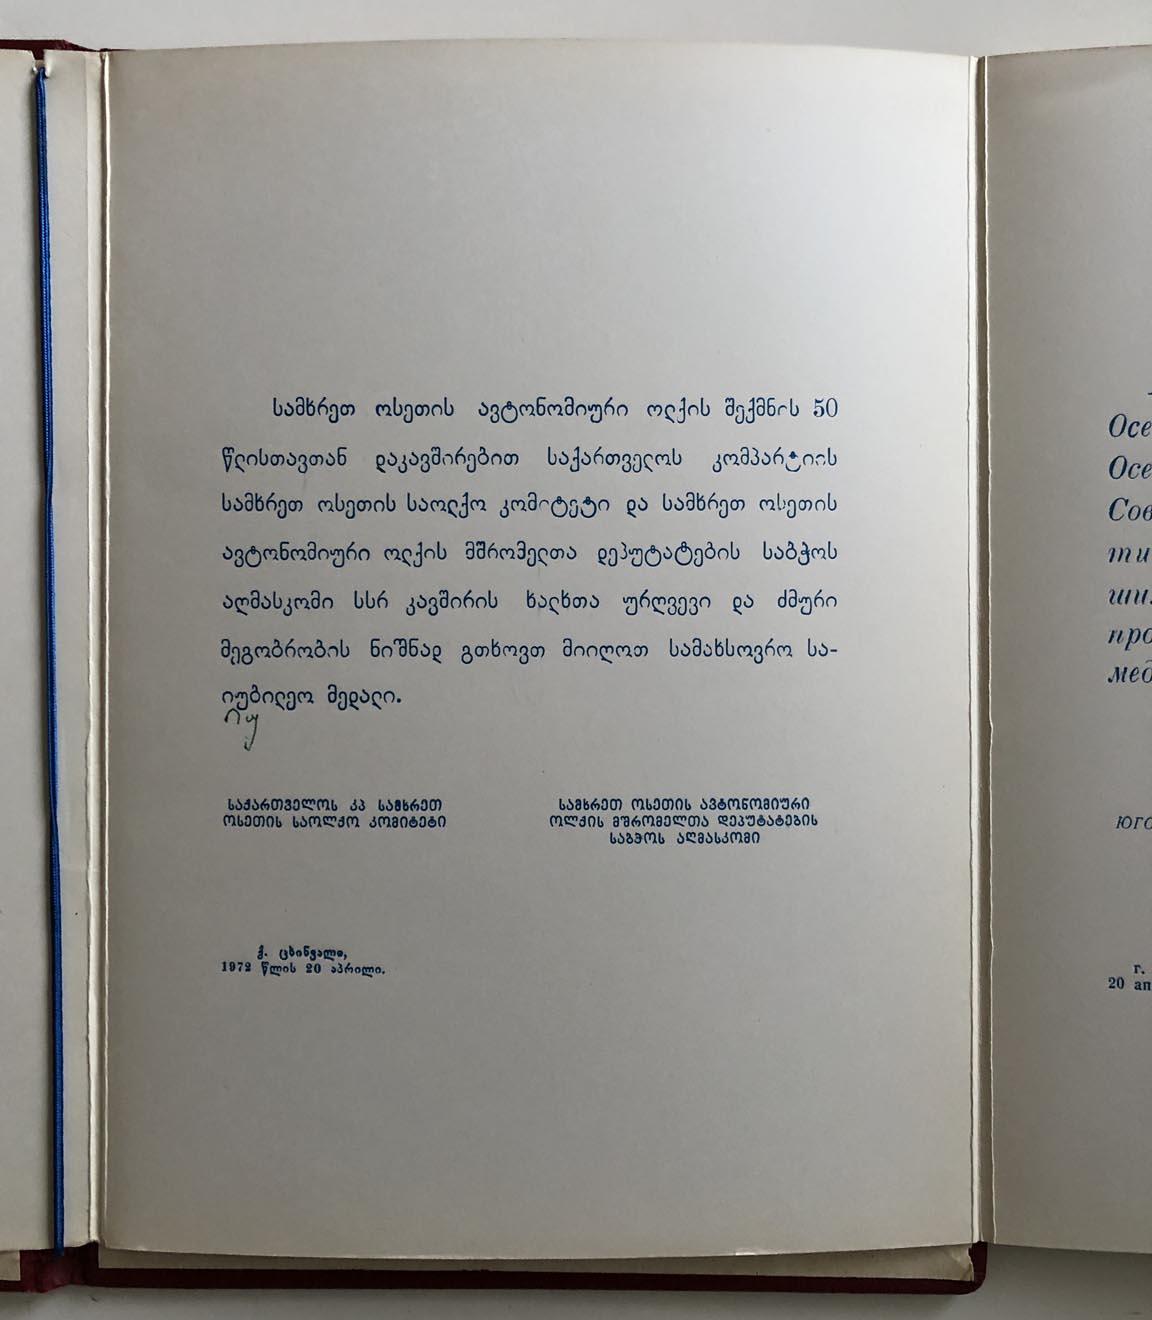 სამხრეთ ოსეთის ავტონომიური ოლქის შექმნის 50
წლისთავთან დაკავშირებით საქართველოს კომპარტიის
სამხრეთ ოსეთის საოლქო კომიტეტი და სამხრეთ ოსეთის
ავტონომიური ოლქის მშრომელთა დეპუტატების საბჭოს
აღმასკომი სსრ კავშირის ხალხთა ურღვევი და ძმური
მეგობრობის ნიშნად გთხოვთ მიიღოთ სამახსოვრო სა-
იუბილეო მედალი.
იუ
საქართველოს კპ სამხრეთ
ოსეთის საოლქო კომიტეტი
სამხრეთ ოსეთის ავტონომიური
ოლქის მშრომელთა დეპუტატების
საბჭოს აღმასკომი
ქ. ცხინვალი,
1972 წლის 20 აპრილი.
Осе
Осе
Сов
ти
ши
про
мед
ЮГО
г.
20 ап